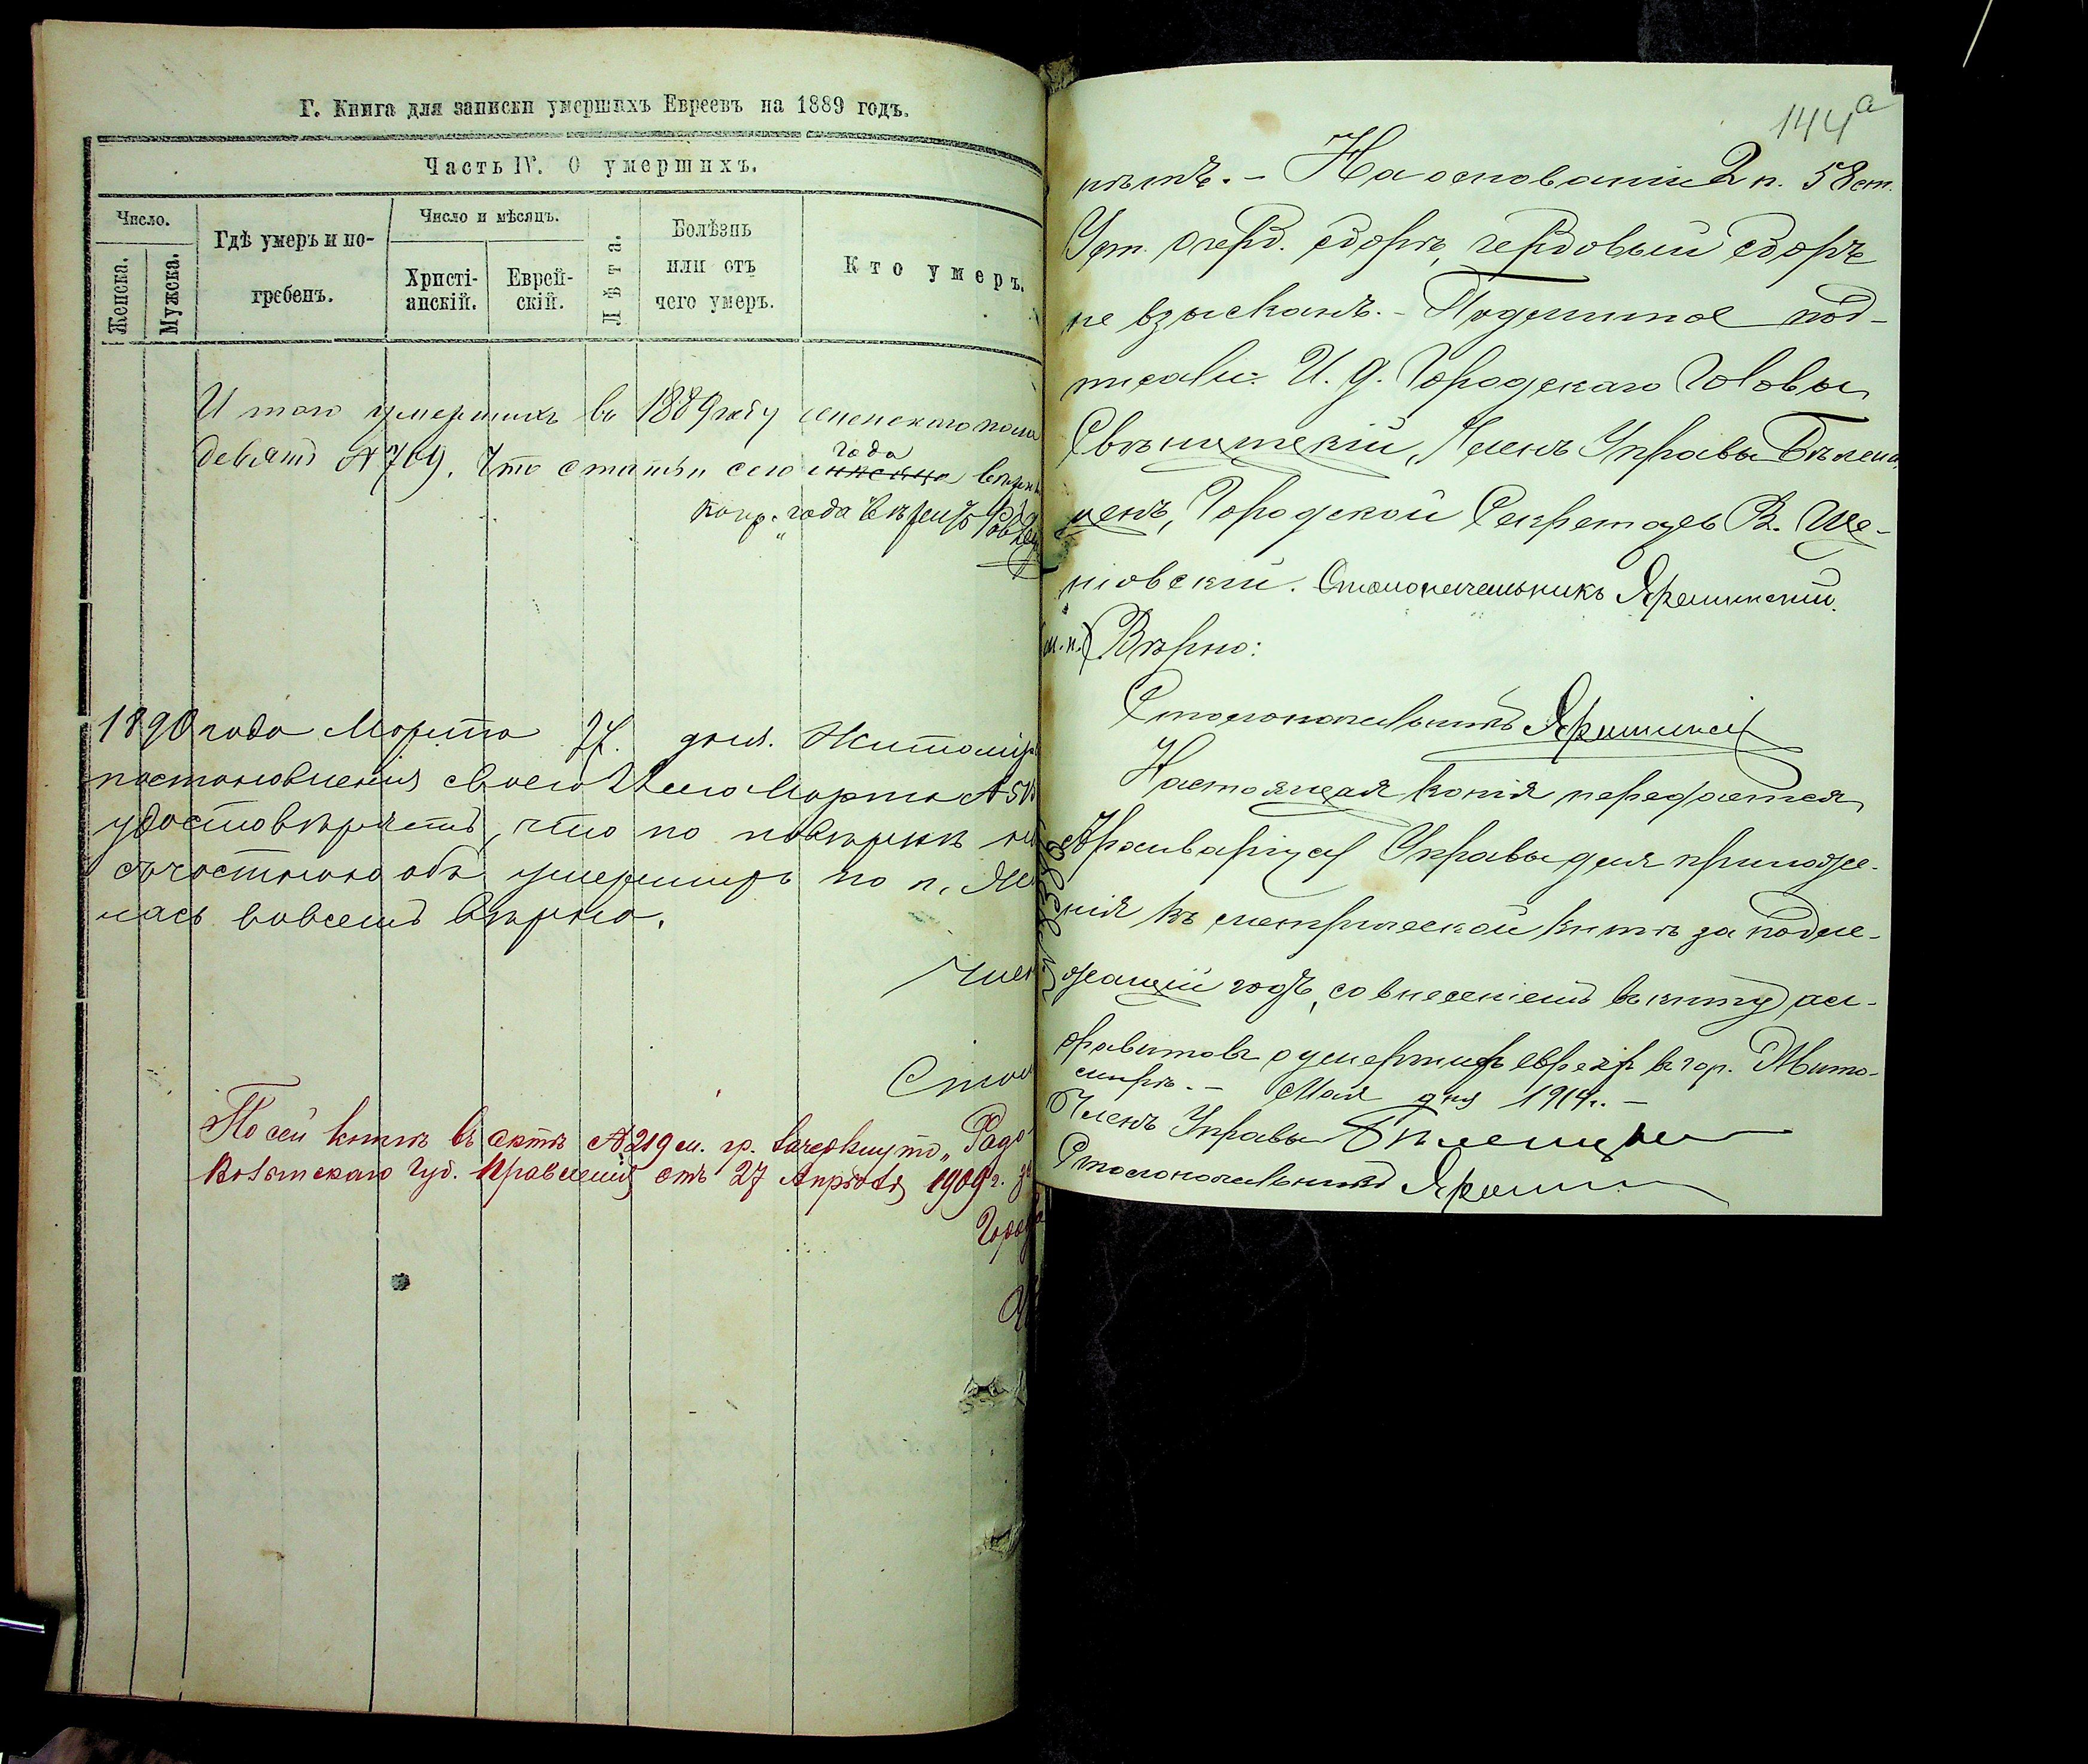 Г. Книга для записки умершихъ Евреевъ на 1889 годъ.
Часть IV. О умершихъ.
Число.
Женска.
Мужска.
Гдѣ умеръ и по-
гребенъ.
Число и мѣсяцъ.
Христі-
анскій.
Еврей-
скій.
Лѣта.
Болѣзнь
или отъ
чего умеръ.
Кто умеръ.
Итого умершихъ въ 1889 году женскаго пола
девять №709. Что статьи сего года мѣсяца вѣрн
года вѣрно
1890 года Марта 27. дня. Житомир
постановленія своего Марта №
удостовѣряетъ, что по повѣркѣ
съ частью объ умершихъ по
лась вовсемъ вѣрна.
Член
Стол
По сей книгѣ въ актѣ №219 м. гр. зачеркнуто „Радо
Волынскаго Губ. Правленія отъ 27 Апрѣля 1909 г.
Город
144а
На основаніи 2 п. 58 ст.
Уст. о герб. сборѣ, гербовый сборъ
не взысканъ. - Подлинное под-
писали: И. д. Городскаго Головы
Членъ Управы Бѣлен
Городской Секретарь В. Ше-
новскій. Столоначальникъ Яреминский.
(м.п.) Вѣрно:
Столоначальникъ
Настоящая копія передается
Архиваріусу Управы для приложе-
нія къ метрической книгѣ за надле-
жащій годъ, со внесеніемъ въ книгу ал-
фавитовъ о умершихъ евреяхъ въ гор. Жито-
мирѣ. - Мая дня 1914 г. -
Членъ Управы
Столоначальникъ